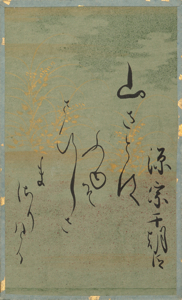 源宗于朝臣
山さとは
ふゆそ
さひしさ
ま
さりける